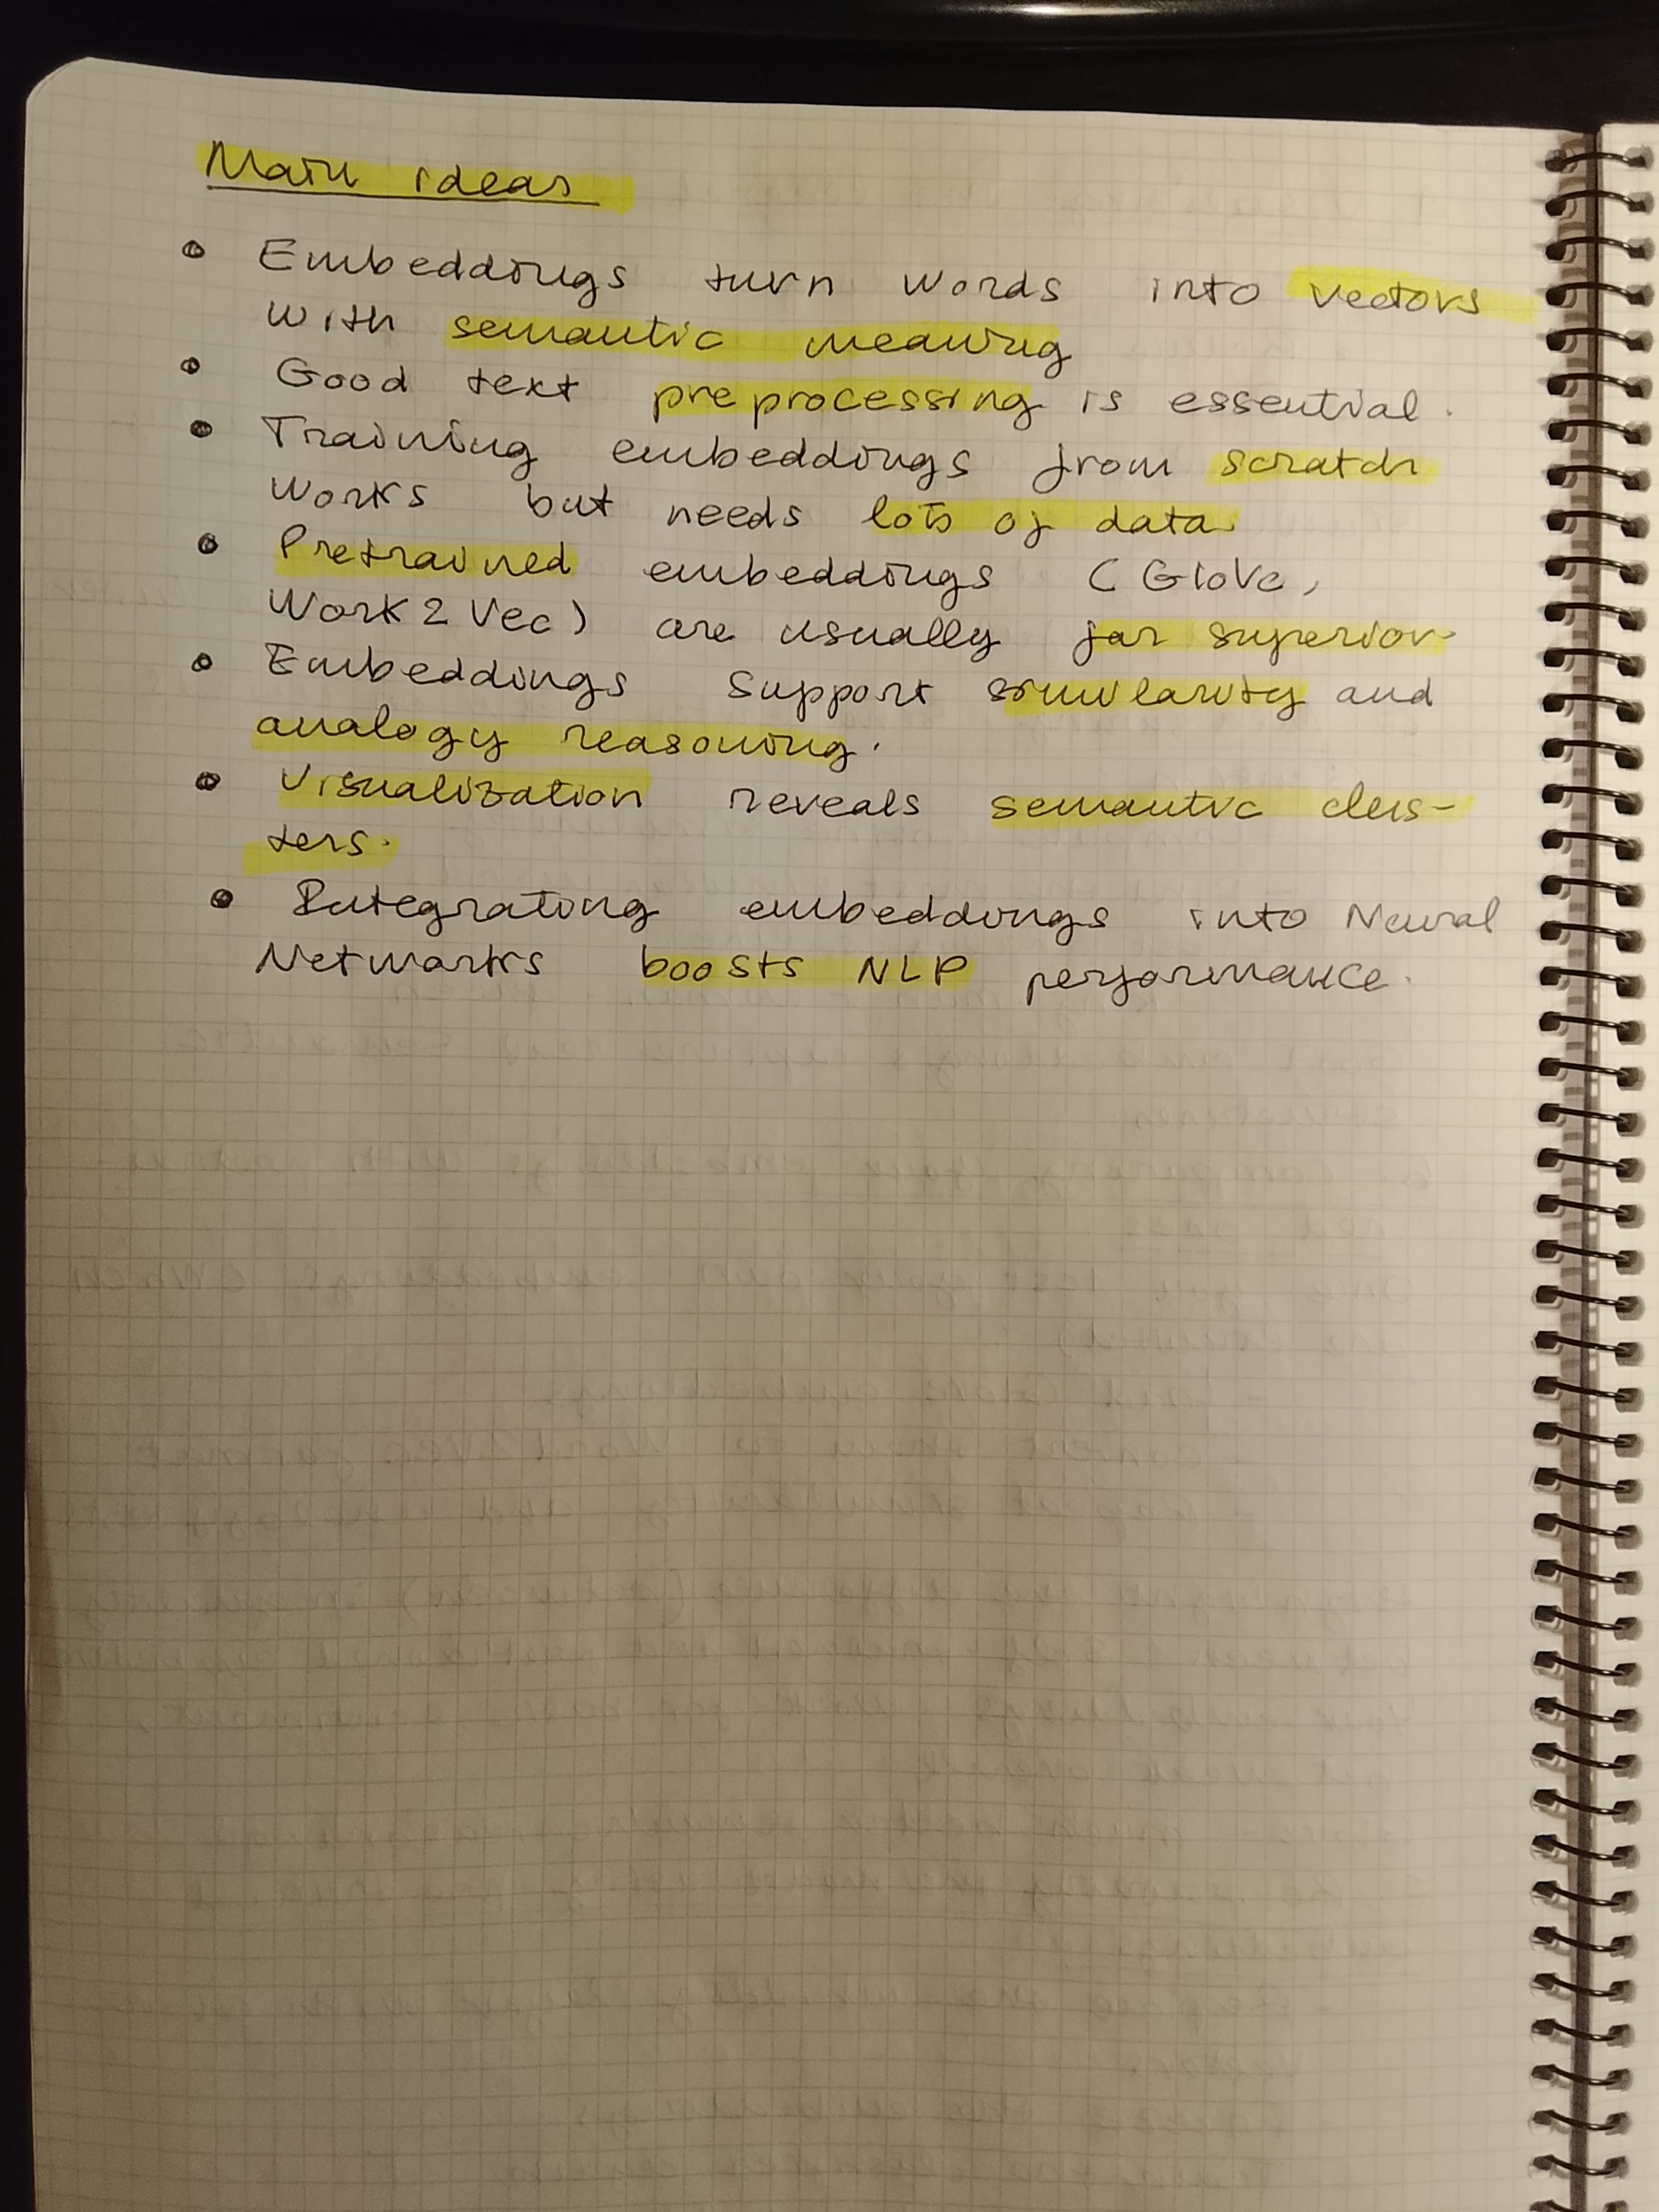 Main ideas
• Embeddings turn words into vectors
with semantic meaning
• Good text preprocessing is essential.
• Training embeddings from scratch
works but needs lots of data.
• Pretrained embeddings (GloVe,
Work2Vec) are usually far superior.
• Embeddings support similarity and
analogy reasoning.
• Visualization reveals semantic clus-
ters.
• Integrating embeddings into Neural
Networks boosts NLP performance.